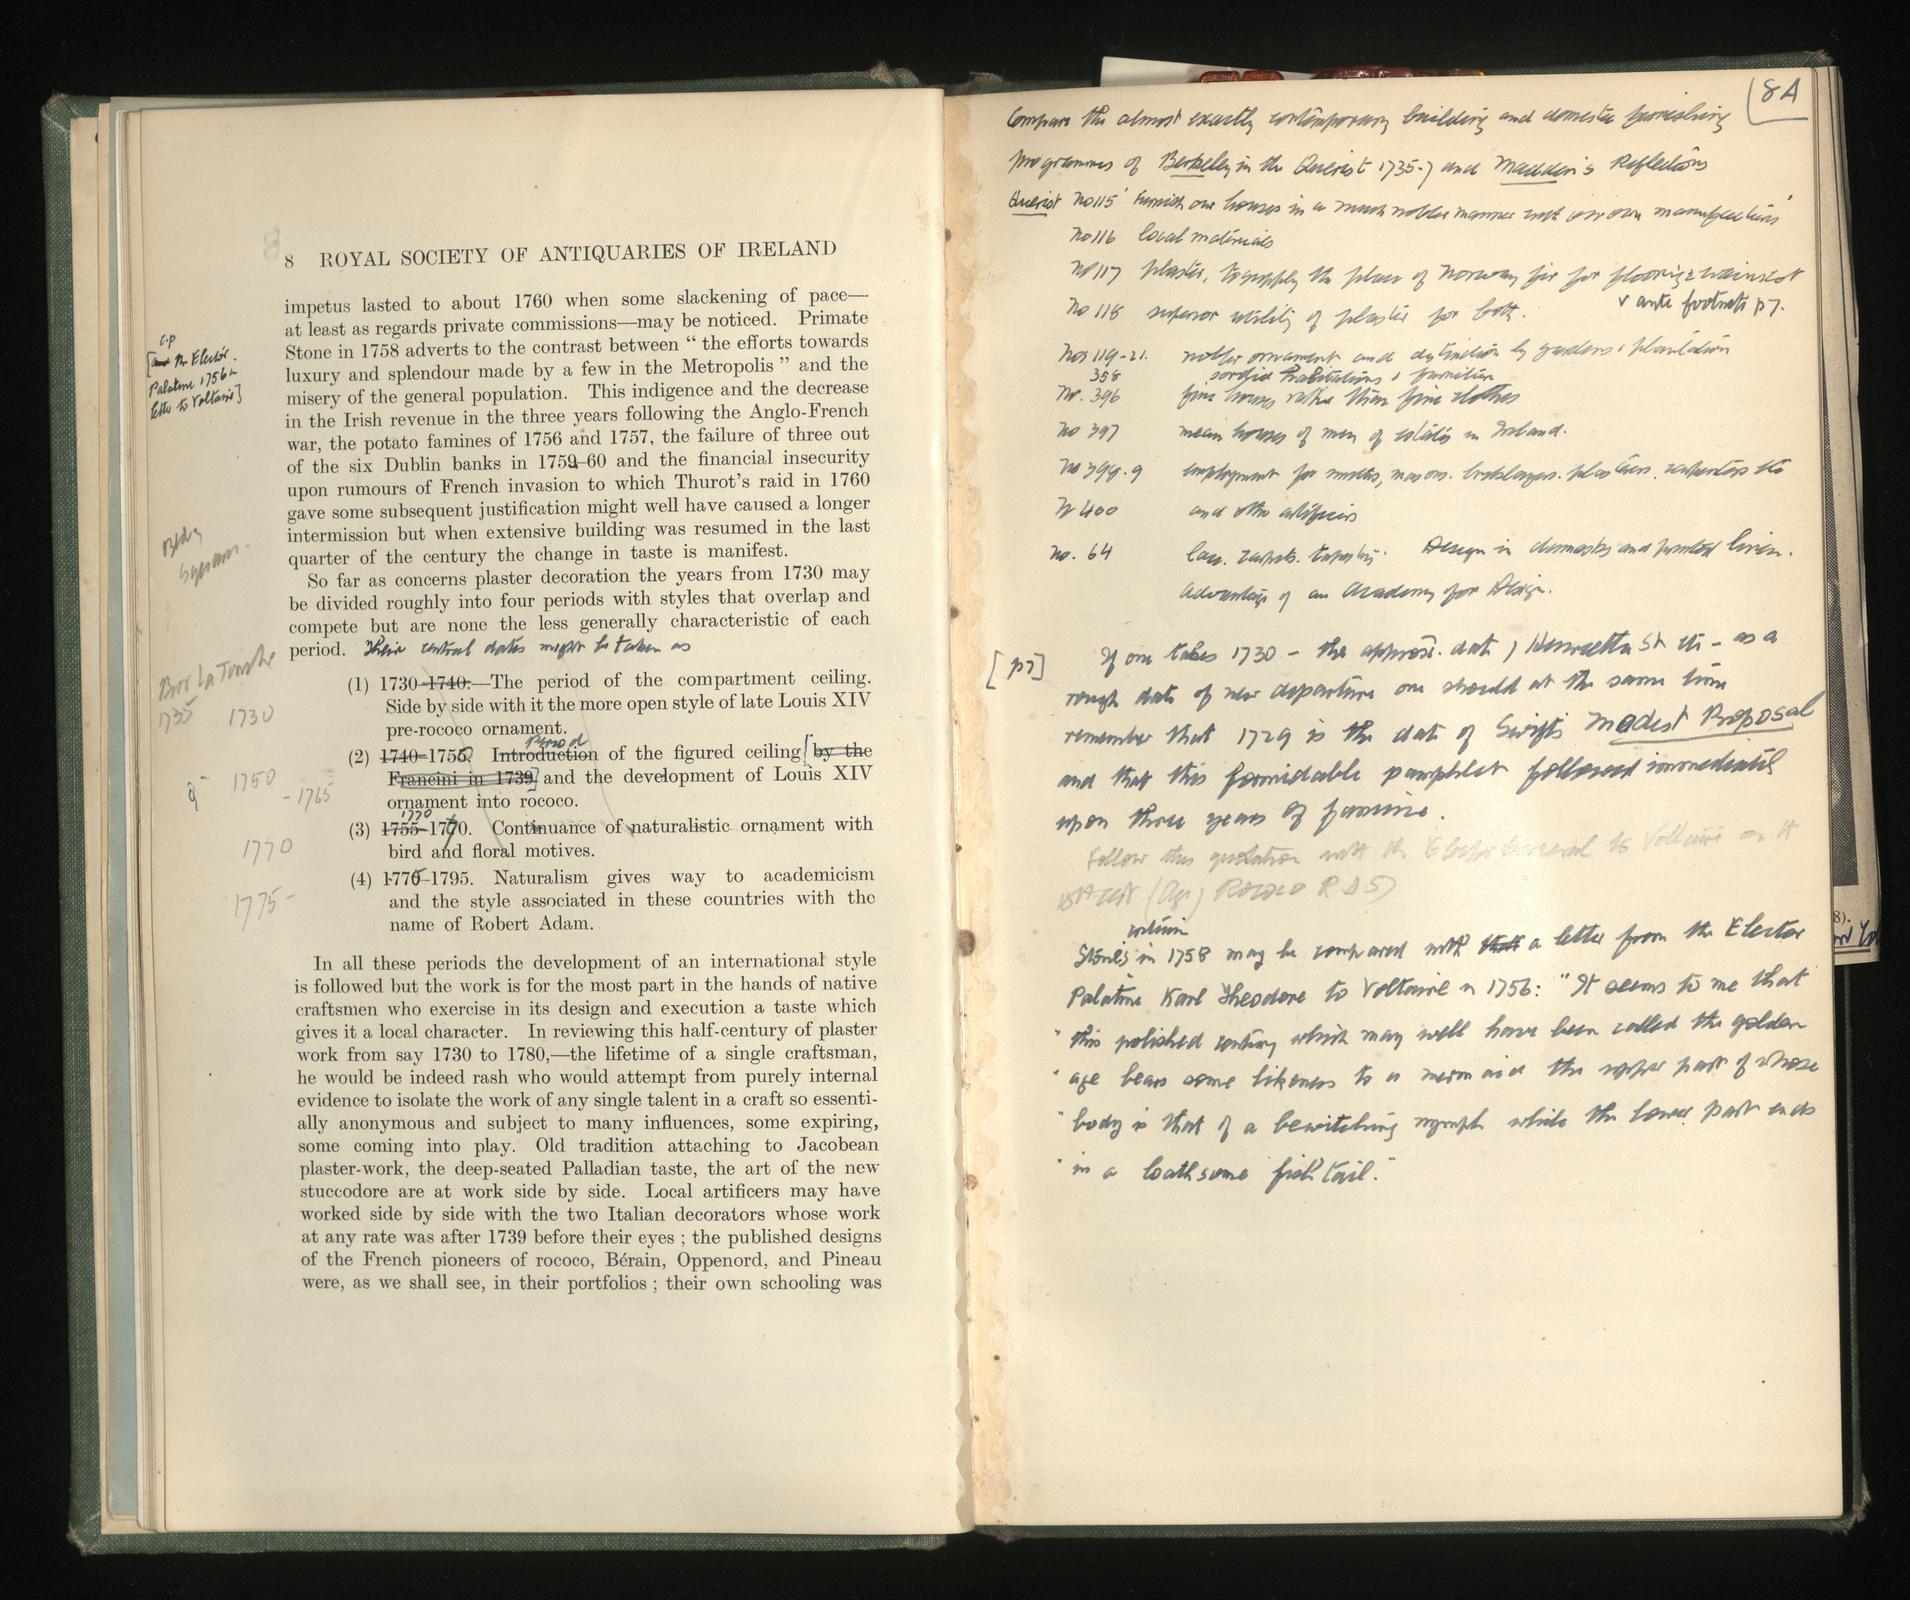 8 ROYAL SOCIETY OF ANTIQUARIES OF IRELAND
impetus lasted to about 1760 when some slackening of pace—
at least as regards private commissions—may be noticed. Primate
Stone in 1758 adverts to the contrast between “ the efforts towards
luxury and splendour made by a few in the Metropolis ” and the
misery of the general population. This indigence and the decrease
in the Irish revenue in the three years following the Anglo-French
war, the potato famines of 1756 and 1757, the failure of three out
of the six Dublin banks in 1759–60 and the financial insecurity
upon rumours of French invasion to which Thurot’s raid in 1760
gave some subsequent justification might well have caused a longer
intermission but when extensive building was resumed in the last
quarter of the century the change in taste is manifest.
So far as concerns plaster decoration the years from 1730 may
be divided roughly into four periods with styles that overlap and
compete but are none the less generally characteristic of each
period. Their central dates might be taken as
(1) 1730-1740.—The period of the compartment ceiling.
Side by side with it the more open style of late Louis XIV
pre-rococo ornament.
Period
(2) 1740-1755. Introduction of the figured ceiling [by the
Francini in 1739] and the development of Louis XIV
ornament into rococo.
1770
(3) 1755-1770. Continuance of naturalistic ornament with
bird and floral motives.
(4) 1770-1795. Naturalism gives way to academicism
and the style associated in these countries with the
name of Robert Adam.
In all these periods the development of an international style
is followed but the work is for the most part in the hands of native
craftsmen who exercise in its design and execution a taste which
gives it a local character. In reviewing this half-century of plaster
work from say 1730 to 1780,—the lifetime of a single craftsman,
he would be indeed rash who would attempt from purely internal
evidence to isolate the work of any single talent in a craft so essenti-
ally anonymous and subject to many influences, some expiring,
some coming into play. Old tradition attaching to Jacobean
plaster-work, the deep-seated Palladian taste, the art of the new
stuccodore are at work side by side. Local artificers may have
worked side by side with the two Italian decorators whose work
at any rate was after 1739 before their eyes ; the published designs
of the French pioneers of rococo, Bérain, Oppenord, and Pineau
were, as we shall see, in their portfolios ; their own schooling was
c.p
[and the Elector
Palatine 1756 in
letter to Voltaire]
La Touche
1735 1730
1750
- 1765
1770
1775-
8A
Compare the almost exactly contemporary building and domestic furnishing
programmes of Berkeley in the Querist 1735-7 and Madden's Reflections
Querist No 115 'Furnish our houses in a much nobler manner with our own manufactures'
No 116 local materials
No 117 plaster, to supply the place of Norway fir for flooring & wainscot
v ante footnote p 7.
No 118 superior utility of plaster for both.
Nos 119-21. nobler ornament and distinction by gardens & plantation
358 sordid habitations & furniture
No. 396 fine houses rather than fine clothes
No 397 mean houses of men of estates in Ireland.
No 399.9 employment for smiths, masons. bricklayers. plasterers. carpenters etc
No 400 and other artificers
No. 64 lace. carpets. tapestry. Design in damasks and printed linen.
Advantage of an Academy for Design.
[p7] If one takes 1730 – the approx. date of Henrietta St etc – as a
rough date of new departure one should at the same time
remember that 1729 is the date of Swift's Modest Proposal
and that this formidable pamphlet followed immediately
upon three years of famine.
Follow this quotation with the Elector to Voltaire on it
Rococo R D S)
Stone's in 1758 may be compared with that a letter from the Elector
Palatine Karl Theodore to Voltaire in 1756: "It seems to me that
" this polished century which may well have been called the golden
" age bears some likeness to a mermaid the upper part of whose
" body is that of a bewitching nymph while the lower part ends
" in a loathsome fish tail."
8).